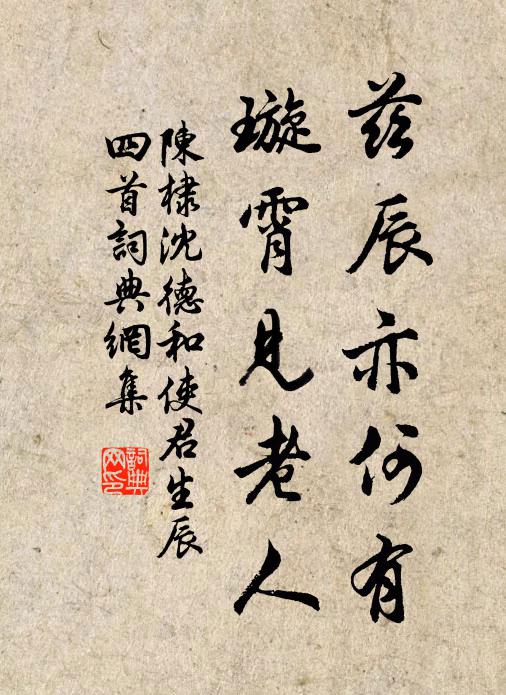 茲辰亦何有
璇霄見老人
陳棣沈德和使君生辰
四首詞典網集
詞典
网印